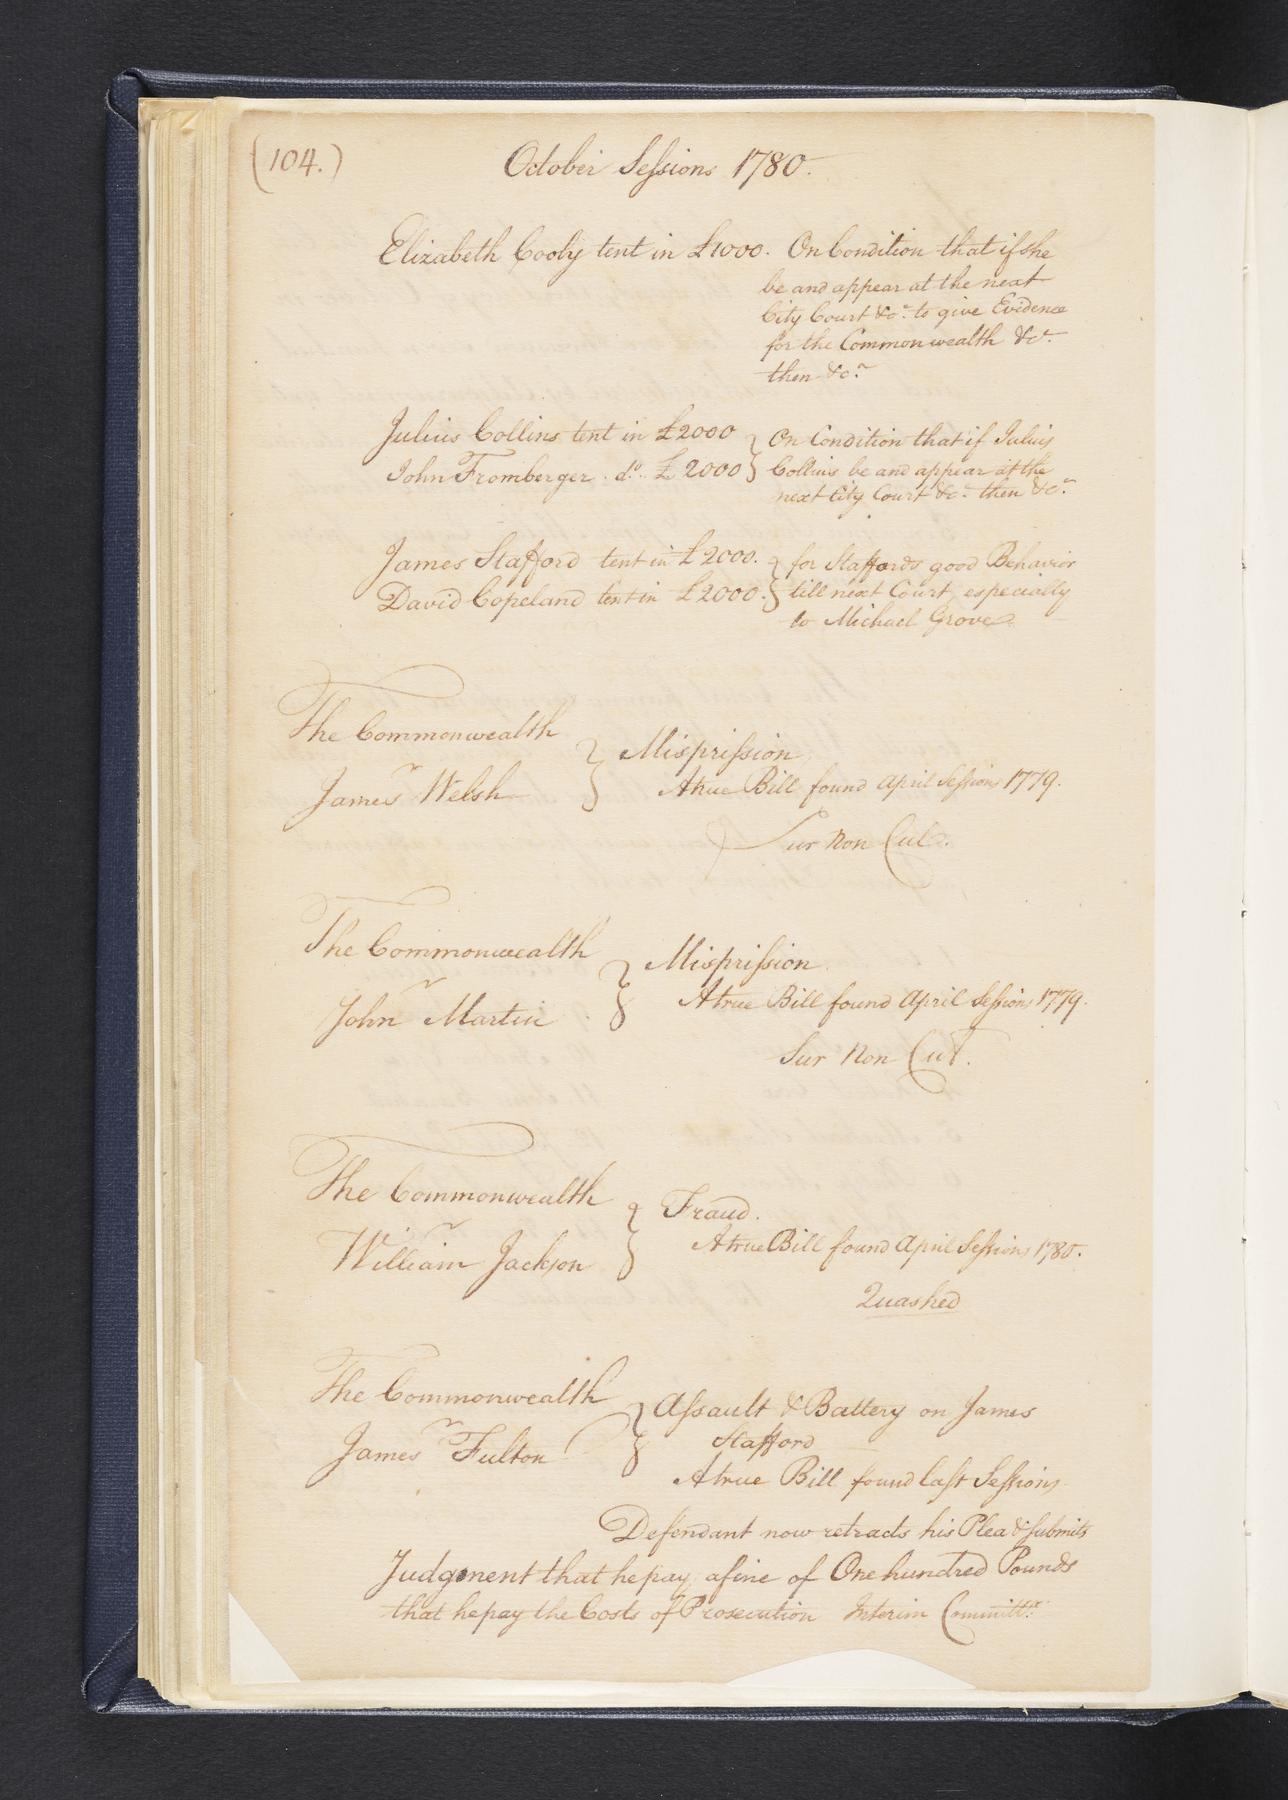 (104.)
October Sessions 1780.
Elizabeth Cooly tent in £1000. On Condition that if she
be and appear at the next
City Court &c.a to give Evidence
for the Commonwealth &c.a
then &c.a
Julius Collins tent in £2000 } On Condition that if Julius
John Fromberger. do. £2000 } Collins be and appear at the
next City Court &c.a then &c.a
James Stafford tent in £2000. } for Staffords good Behavior
David Copeland tent in £2000. } till next Court, especially
to Michael Grove
The Commonwealth
v } Misprission
James Welsh } A true Bill found April Sessions 1779.
Sur Non Cul.
The Commonwealth
v } Misprission
John Martin } A true Bill found April Sessions 1779.
Sur Non Cul.
The Commonwealth
v } Fraud.
William Jackson } A true Bill found April Sessions 1780.
Quashed
The Commonwealth
v } Assault & Battery on James
James Fulton } Stafford
A true Bill found last Sessions
Defendant now retracts his Plea & submits
Judgment that he pay a fine of One hundred Pounds
that he pay the Costs of Prosecution Interim Committr.